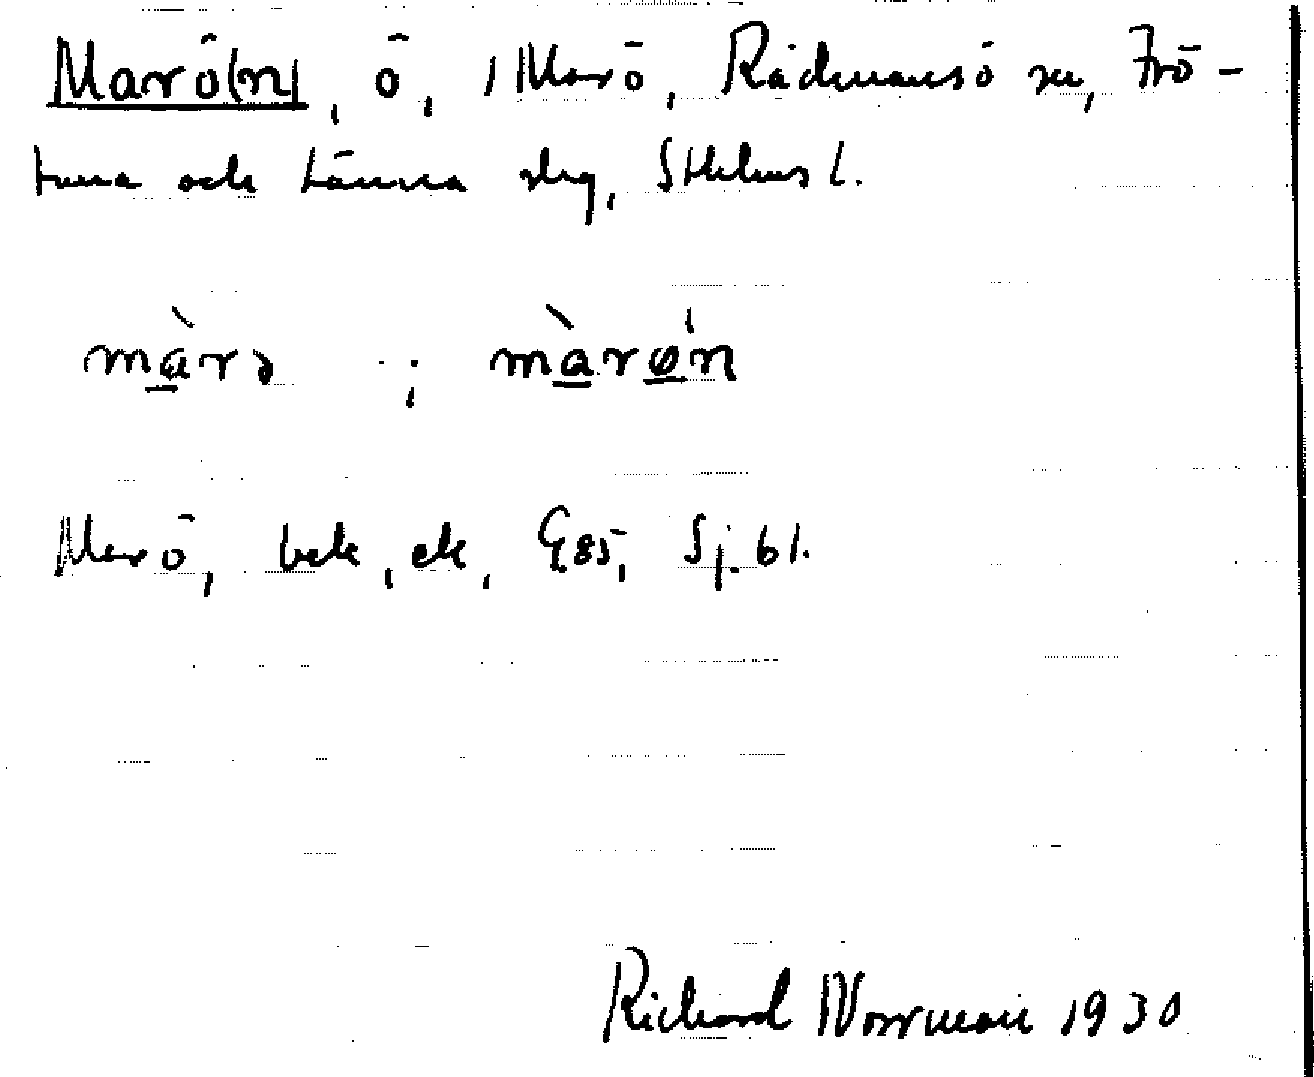 Marö(n), ö, 1 Marö, Rådmansö sn, Frö-
tuna och Länna skg, Sthlms l.
màrə ; màrǿn
Marö, bek, ek, G85, Sj.bl.
Richard Norrman 1930